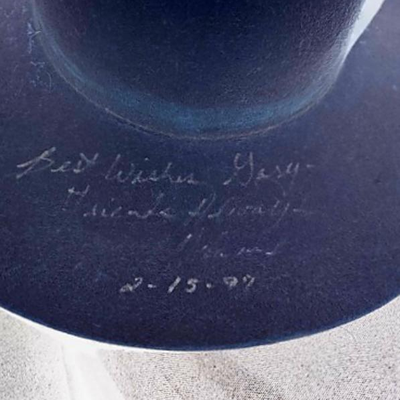 Best Wishes Gary-
Friends Always-
2-15-97